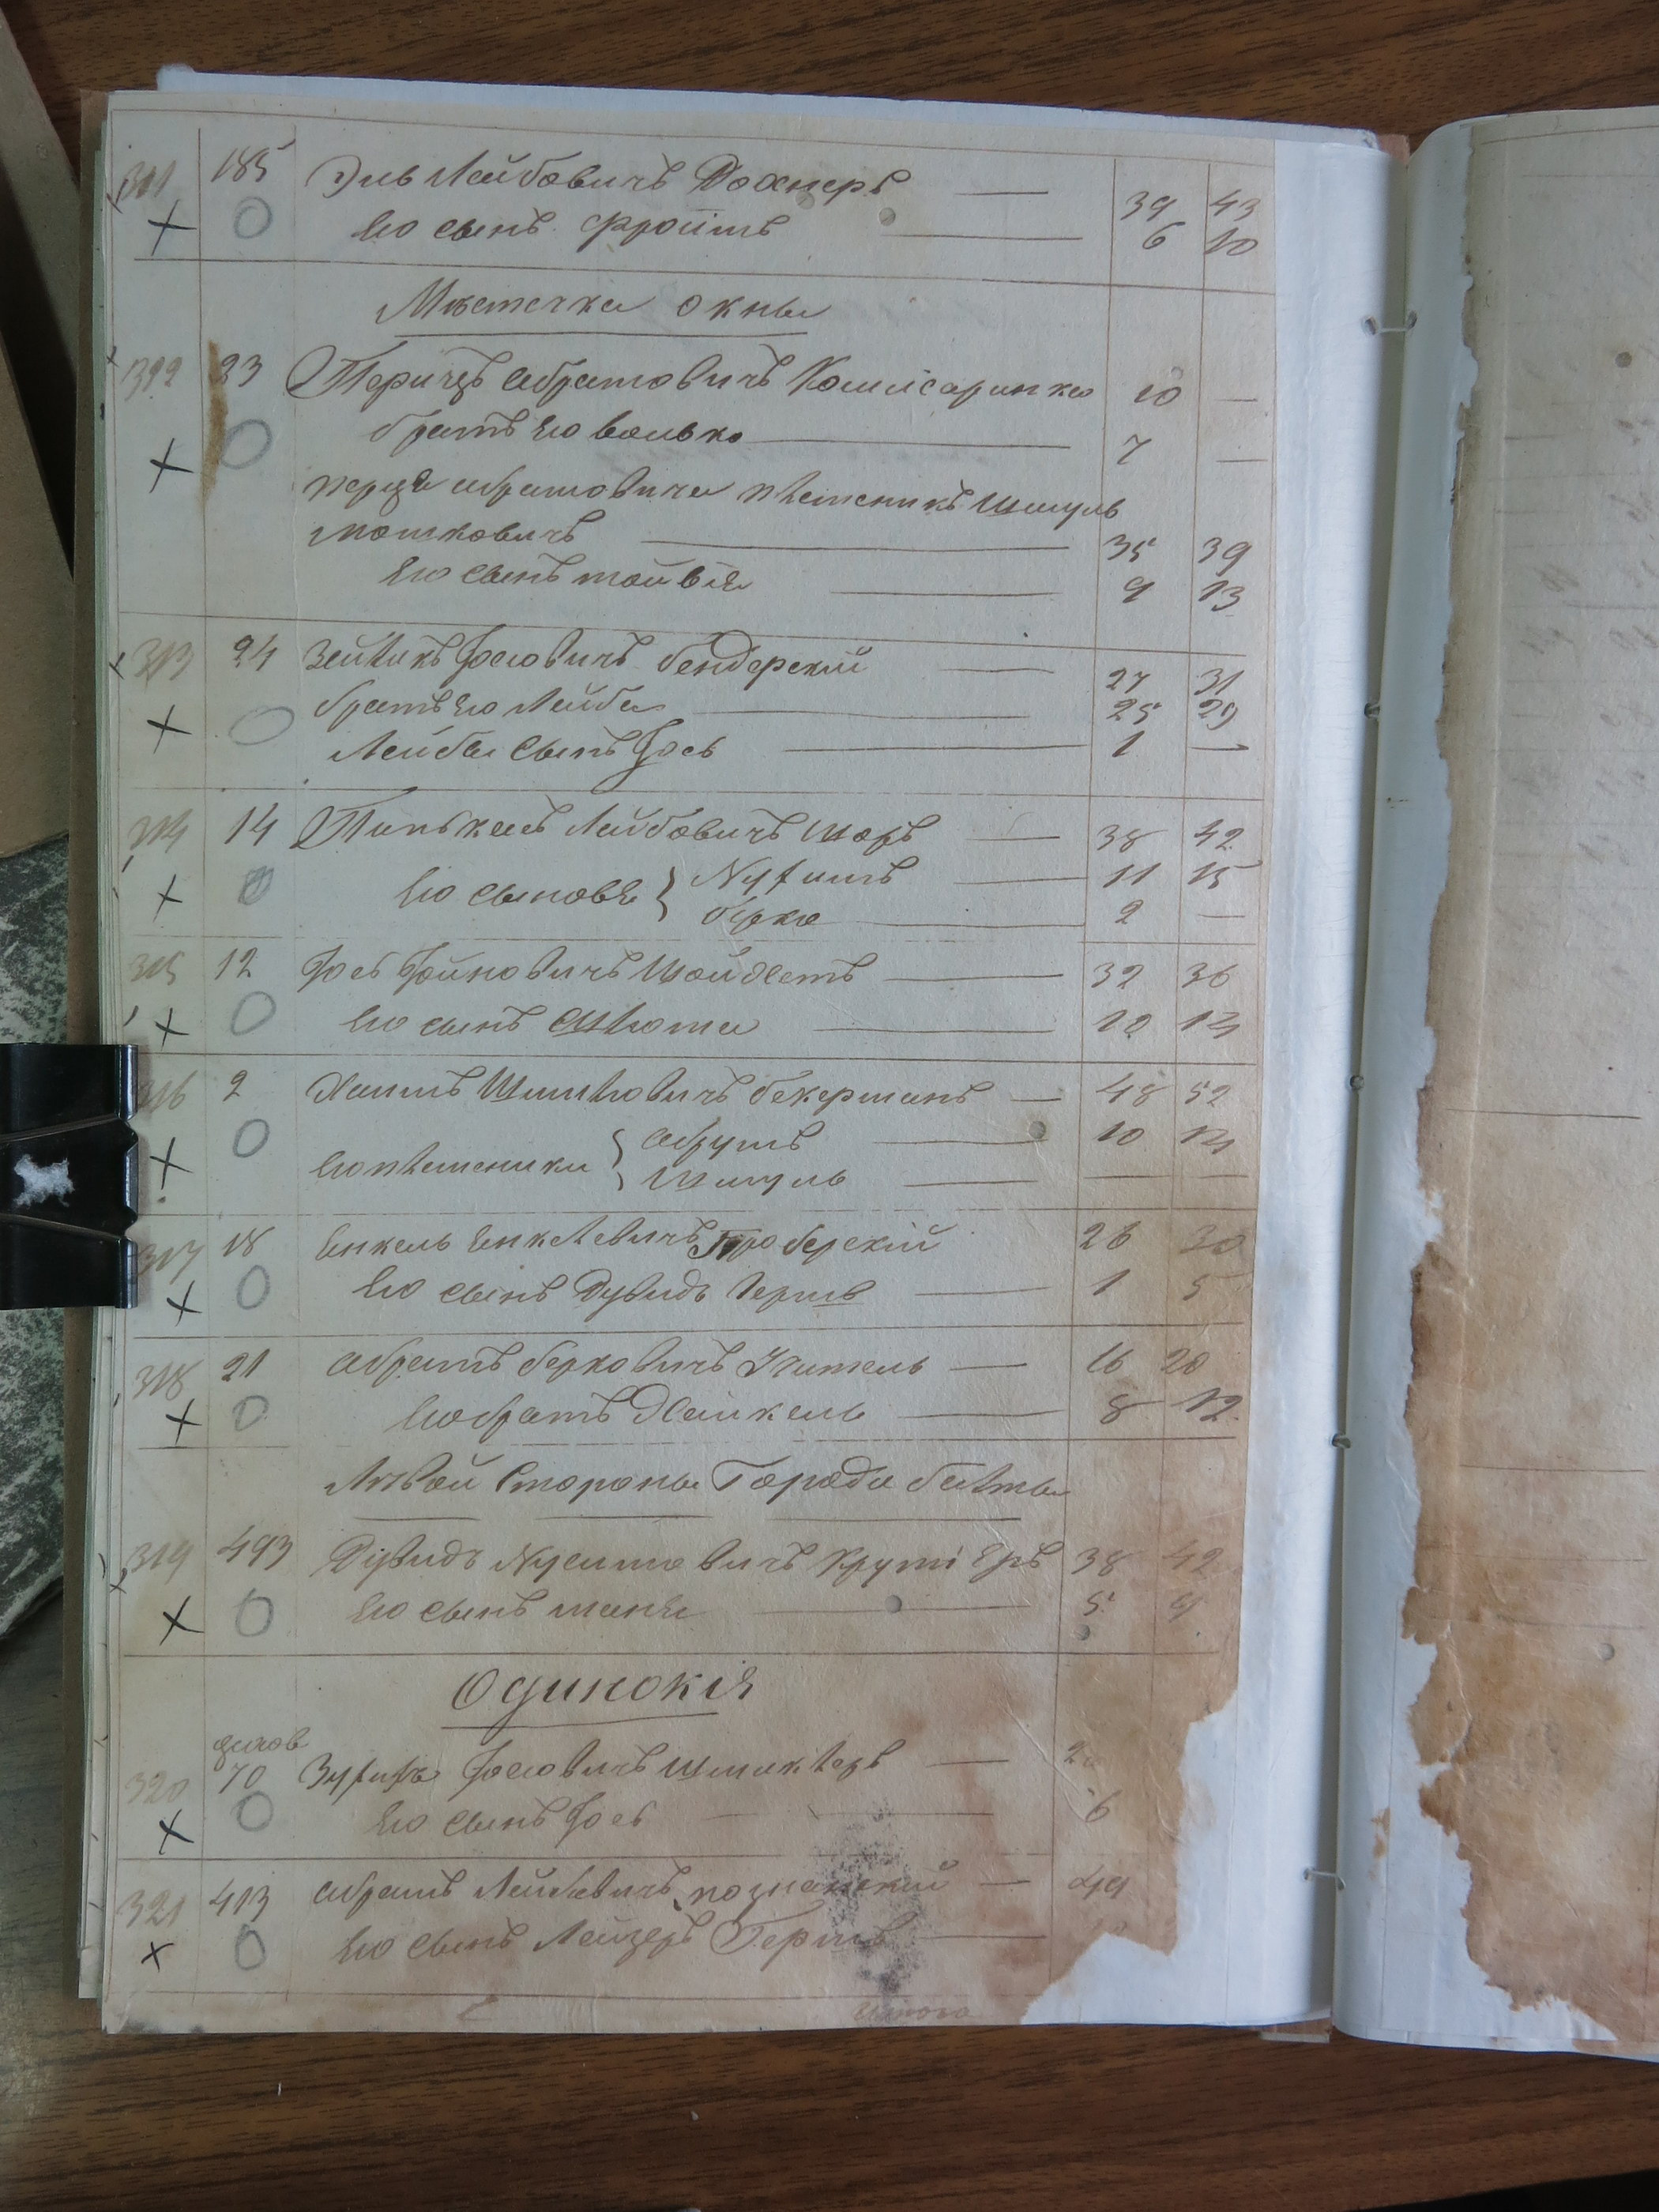 311 185 Эль Лейбовичъ Дохнеръ — 39 43
× 0 Его сынъ Фроимъ — 6 10
Мѣстечка Окны
312 23 Перицъ Абрамовичъ Комисаринко 10 —
0 братъ Его Волько — 7 —
× Перца Абрамовича племеникъ Шмуль
Мошковичъ — 35 39
Его сынъ Тойвiя — 9 13
× 313 24 Зейликъ Iосiовичъ Бендерскiй — 27 31
× 0 братъ Его Лейба — 25 29
Лейбы сынъ Iось — 1 —
314 14 Пинькасъ Лейбовичъ Шоръ — 38 42
× 0 Его сыновья { Нухимъ — 11 15
Берко — 2 —
315 12 Iось Iойновичъ Шойхетъ — 32 36
× 0 Его сынъ Шлiома — 10 14
316 2 Хаимъ Шмулiовичъ Бекерманъ — 48 52
× 0 Его племеники { Абрумъ — 10 14
Шмуль — — —
317 18 Енкель Енкелевичъ 26 30
× 0 Его сынъ Дувидъ Гершъ — 1 5
318 21 Абрамъ Берковичъ Учитель — 16 20
× 0 Его братъ Хаимкель — 8 12
Лѣвой Стороны Города Балты
319 493 Дувидъ Нусимовичъ Крутiеръ 38 42
× 0 Его сынъ Маня — 5 9
Одинокiя
320 70 Iосiовичъ Шмуклеръ —
× 0 Его сынъ Iось — 6
321 413 Абрамъ Лейбовичъ Познанскiй — 49
× 0 Его сынъ Лейзеръ Гершъ —
Итого